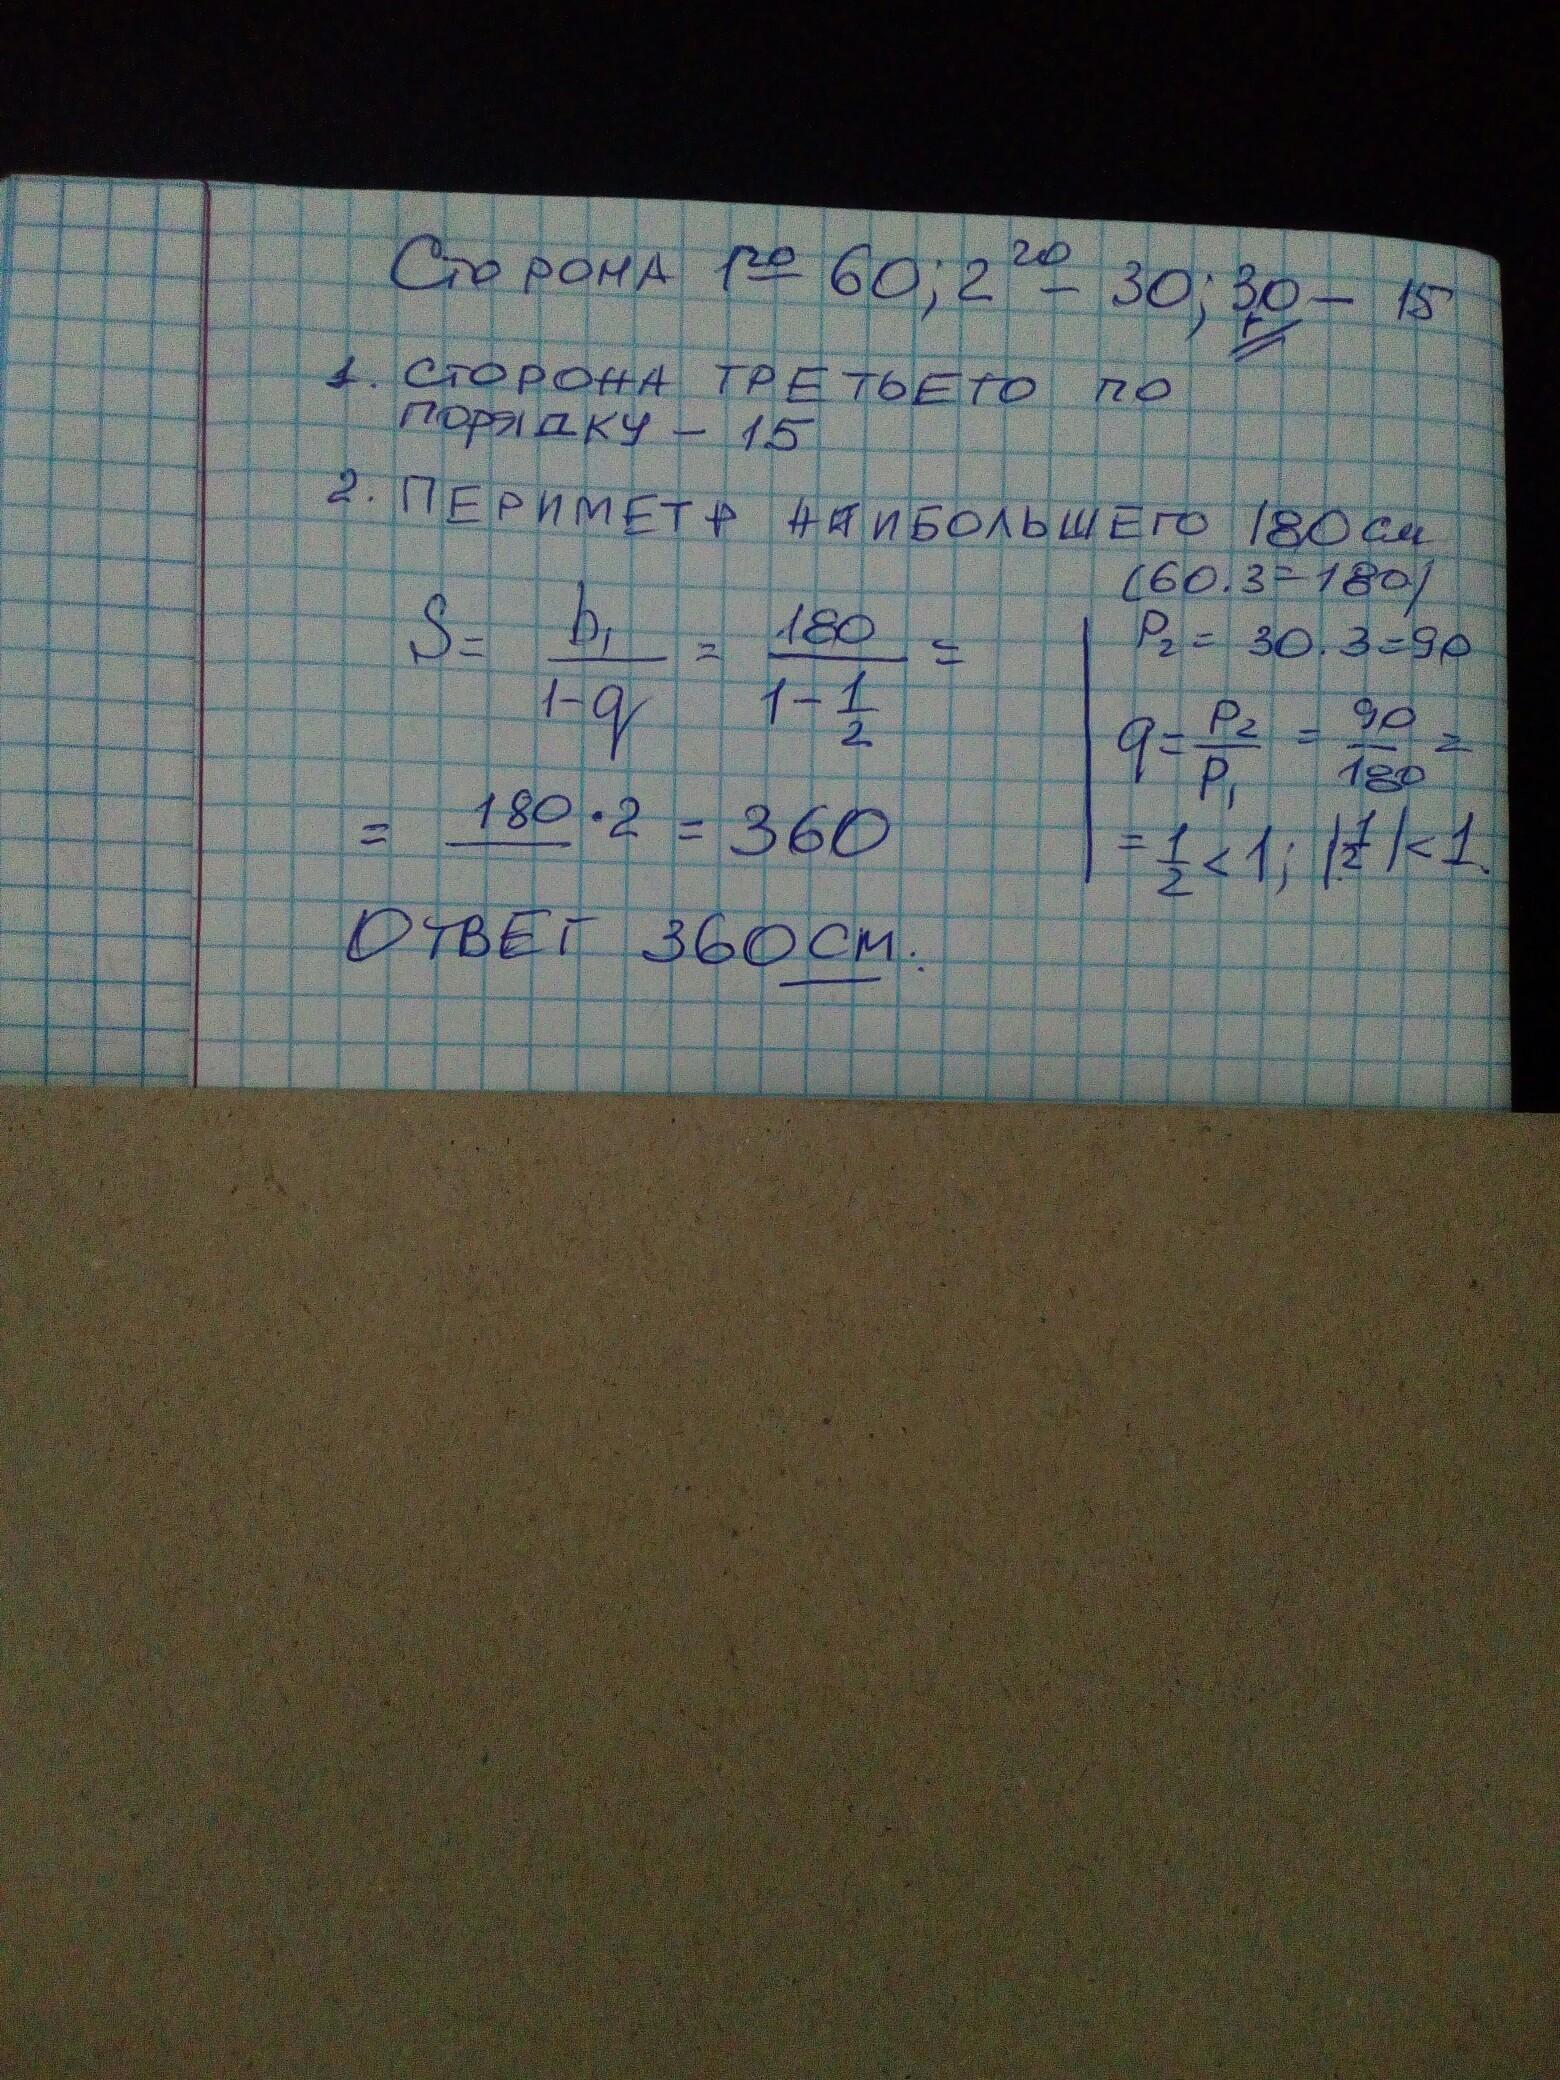 Сторона 1го 60; 2го – 30; 30 – 15
1. Сторона третьего по
порядку – 15
2. Периметр наибольшего 180 см
(60.3=180)
S = b₁/(1-q) = 180/(1-1/2) =
= 180 · 2 = 360
P₂ = 30.3=90
q = P₂/P₁ = 90/180 =
= 1/2 < 1; |1/2| < 1.
Ответ 360 см.